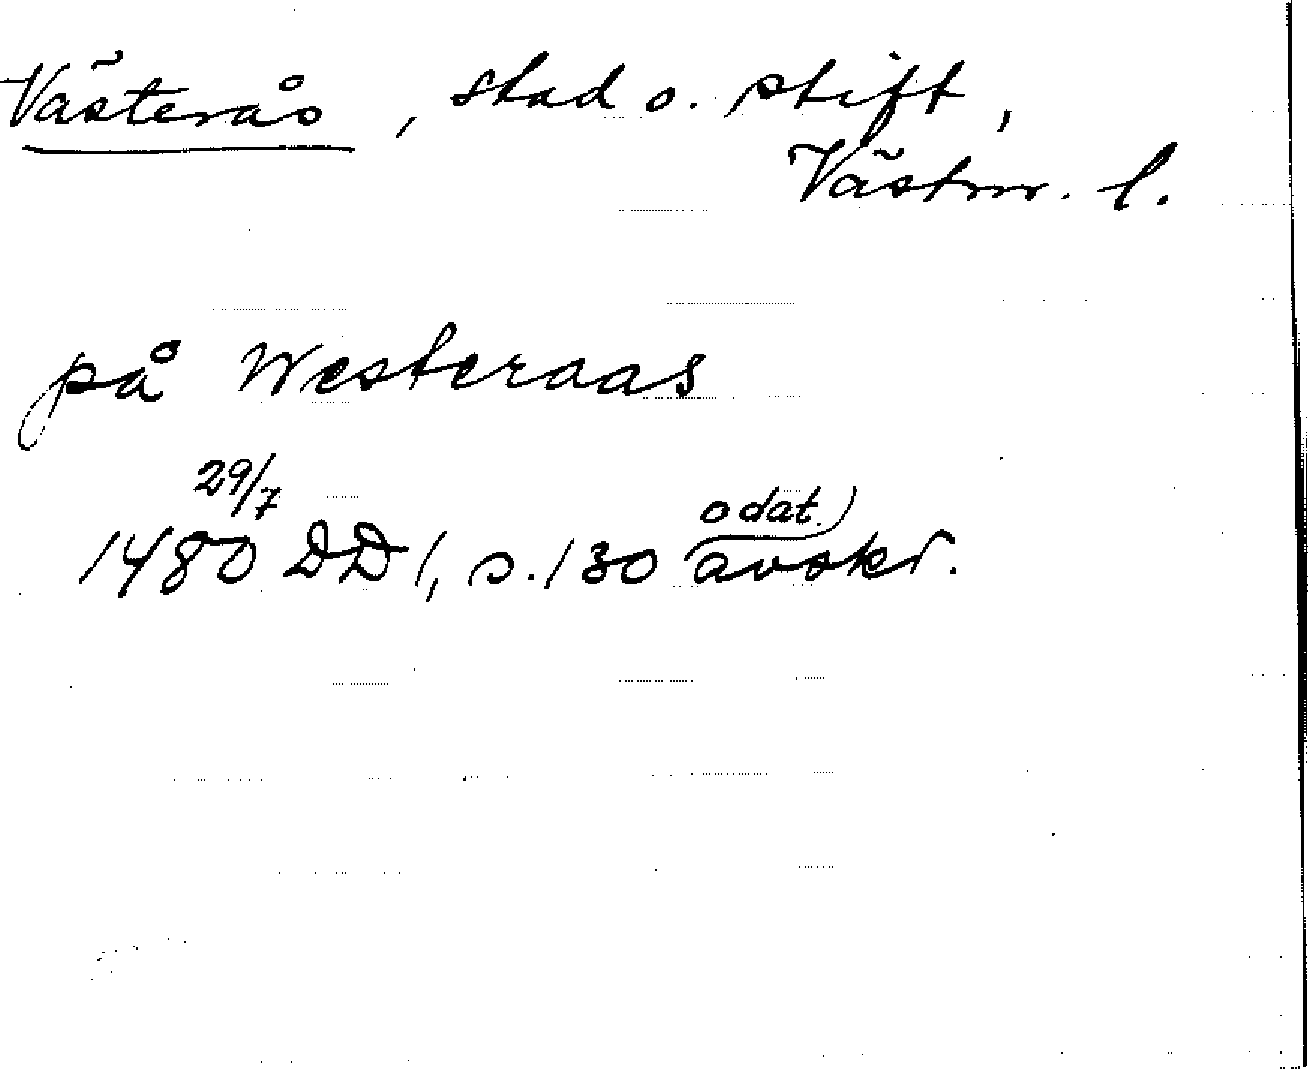 Västerås, stad o. stift,
Västm. l.
på Westeraas
29/7
odat.
1480 DD 1, s. 130 avskr.